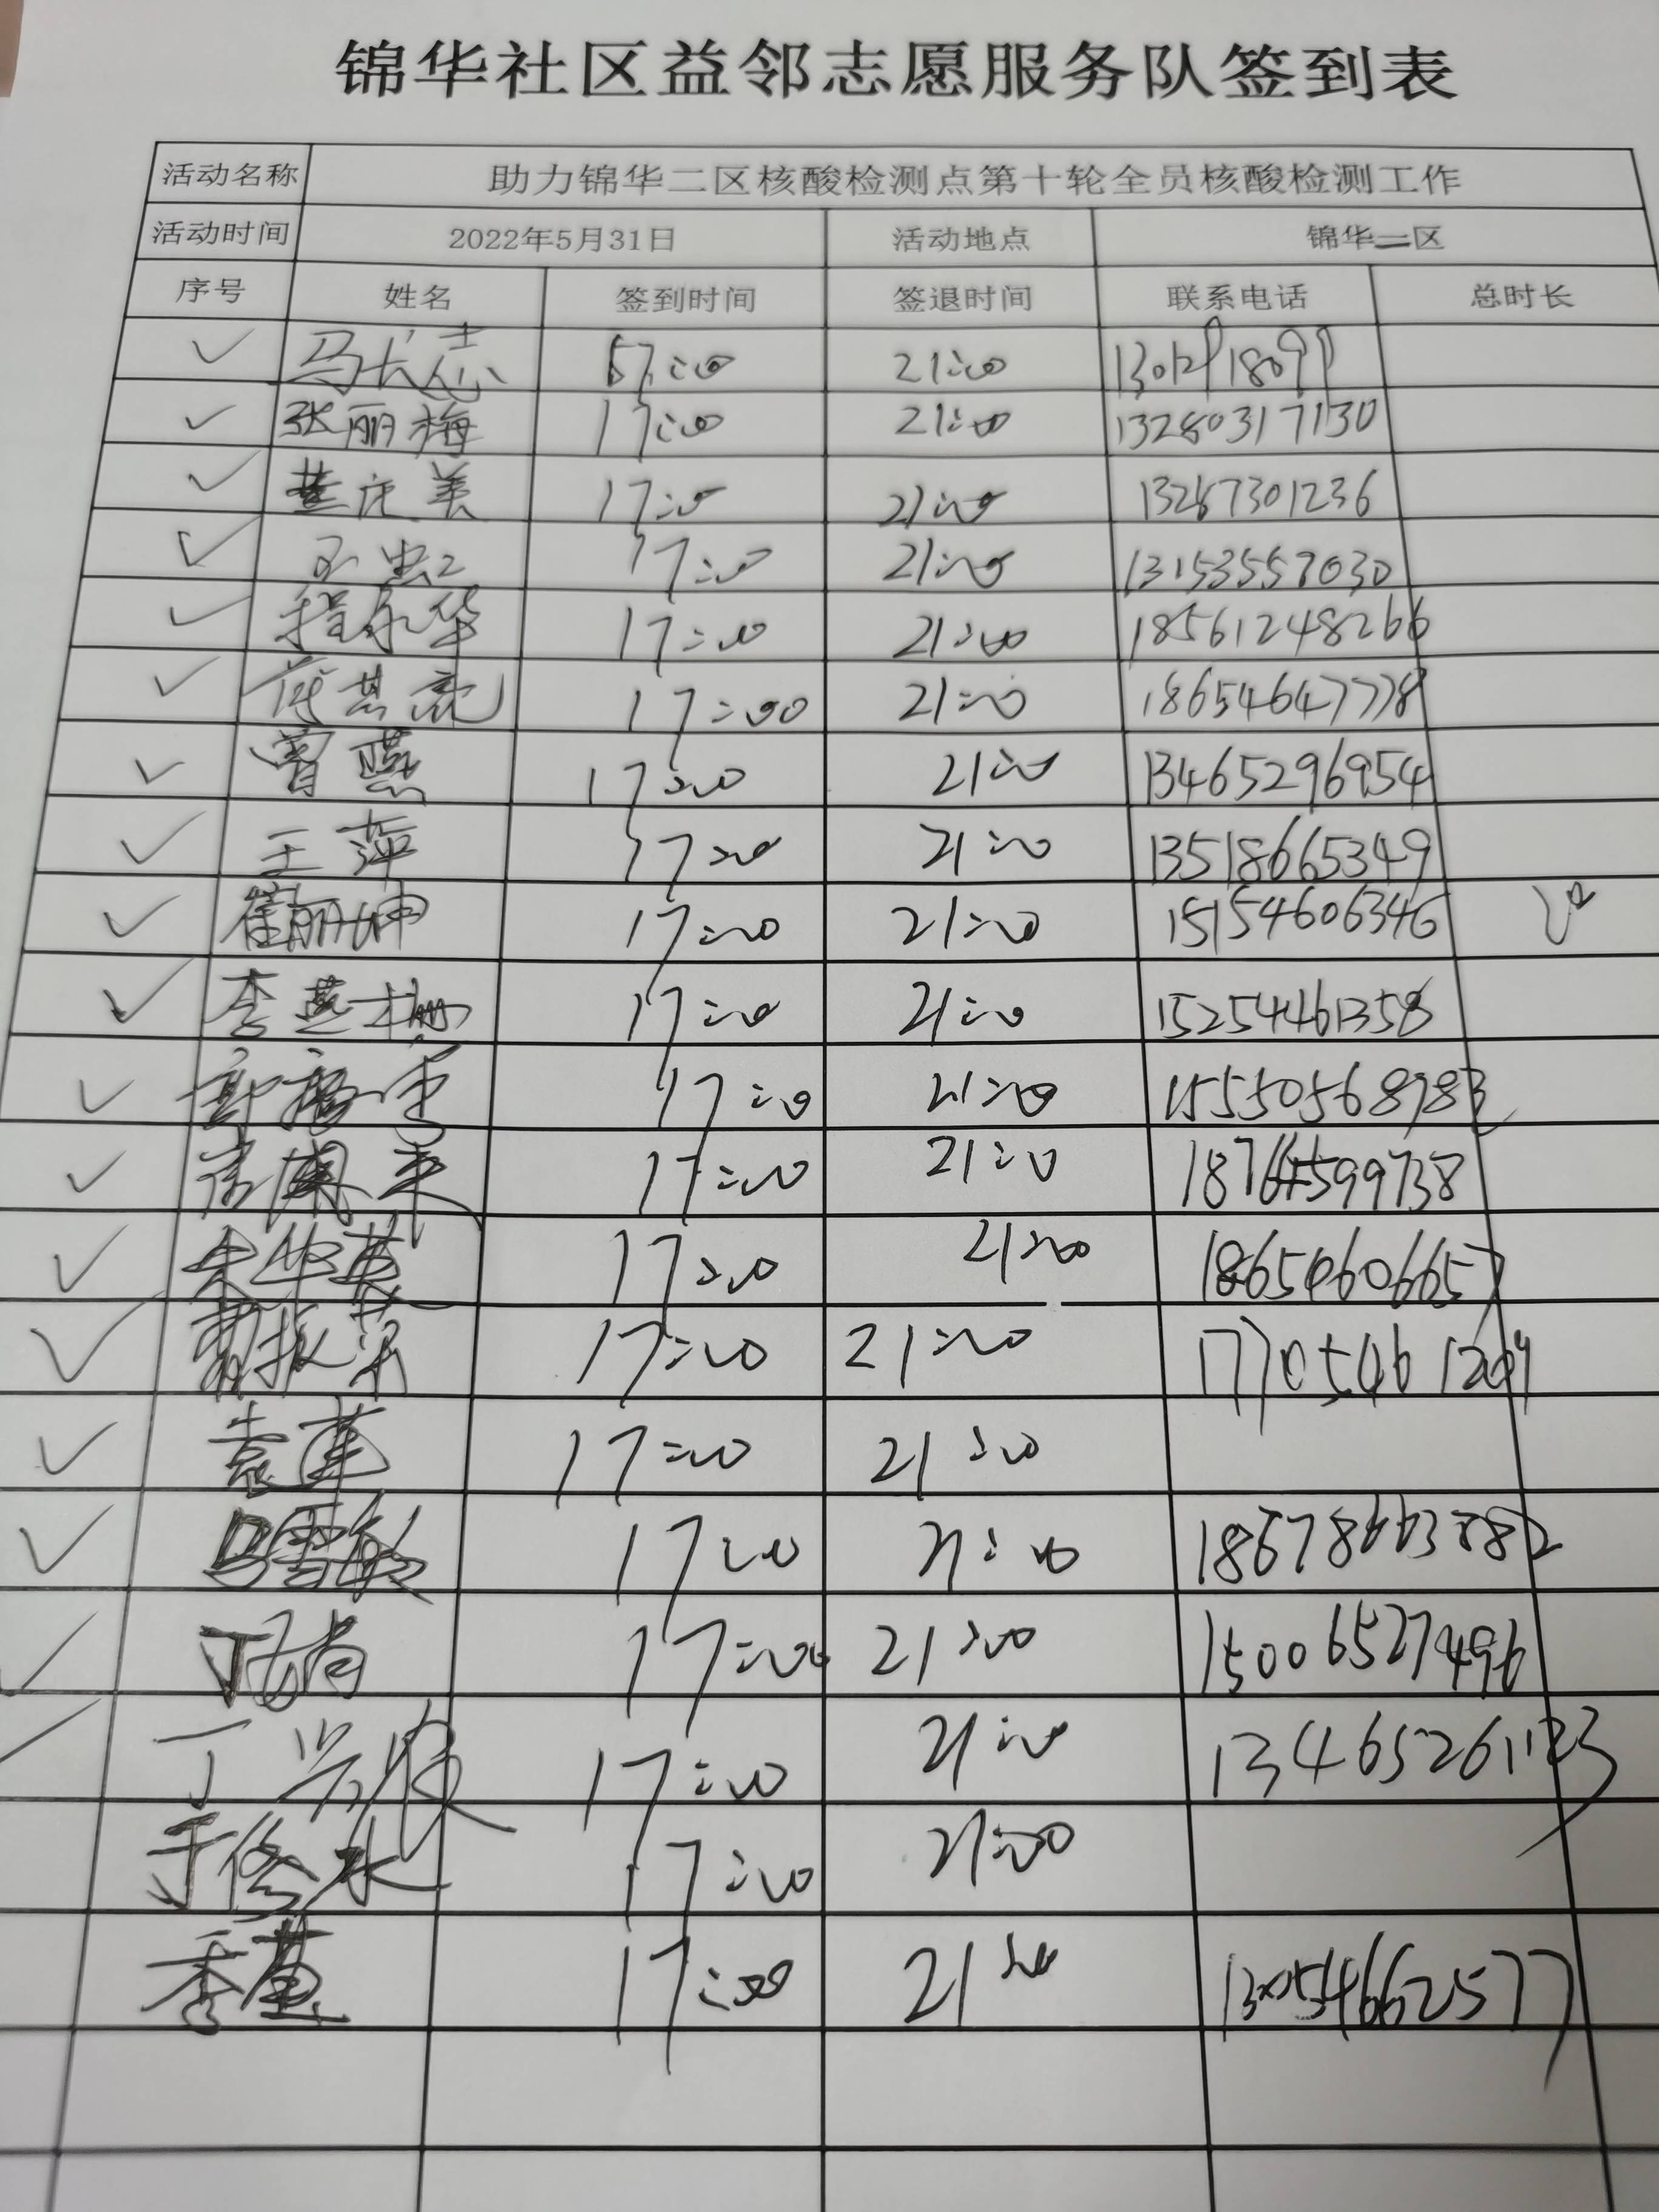 锦华社区益邻志愿服务队签到表
活动名称 助力锦华二区核酸检测点第十轮全员核酸检测工作
活动时间 2022年5月31日 活动地点 锦华二区
序号 姓名 签到时间 签退时间 联系电话 总时长
✓ 马长志 17:00 21:00
✓ 张丽梅 17:00 21:00 13280317130
✓ 17:00 21:00 13287301236
✓ 17:00 21:00 13153557030
✓ 程永华 17:00 21:00 18561248266
✓ 17:00 21:00 18654647778
✓ 曹燕 17:00 21:00 13465296954
✓ 王萍 17:00 21:00 13518665349
✓ 崔丽坤 17:00 21:00 15154606346
✓ 李燕 17:00 21:00 15254461358
✓ 17:00 21:00
✓ 17:00 21:00 18764599738
✓ 朱华英 17:00 21:00 18654606657
✓ 17:00 21:00
✓ 袁莲 17:00 21:00
✓ 马雪敏 17:00 21:00 18678663882
✓ 17:00 21:00 15006527496
✓ 丁兴 17:00 21:00
于修水 17:00 21:00
季莲 17:00 21:00